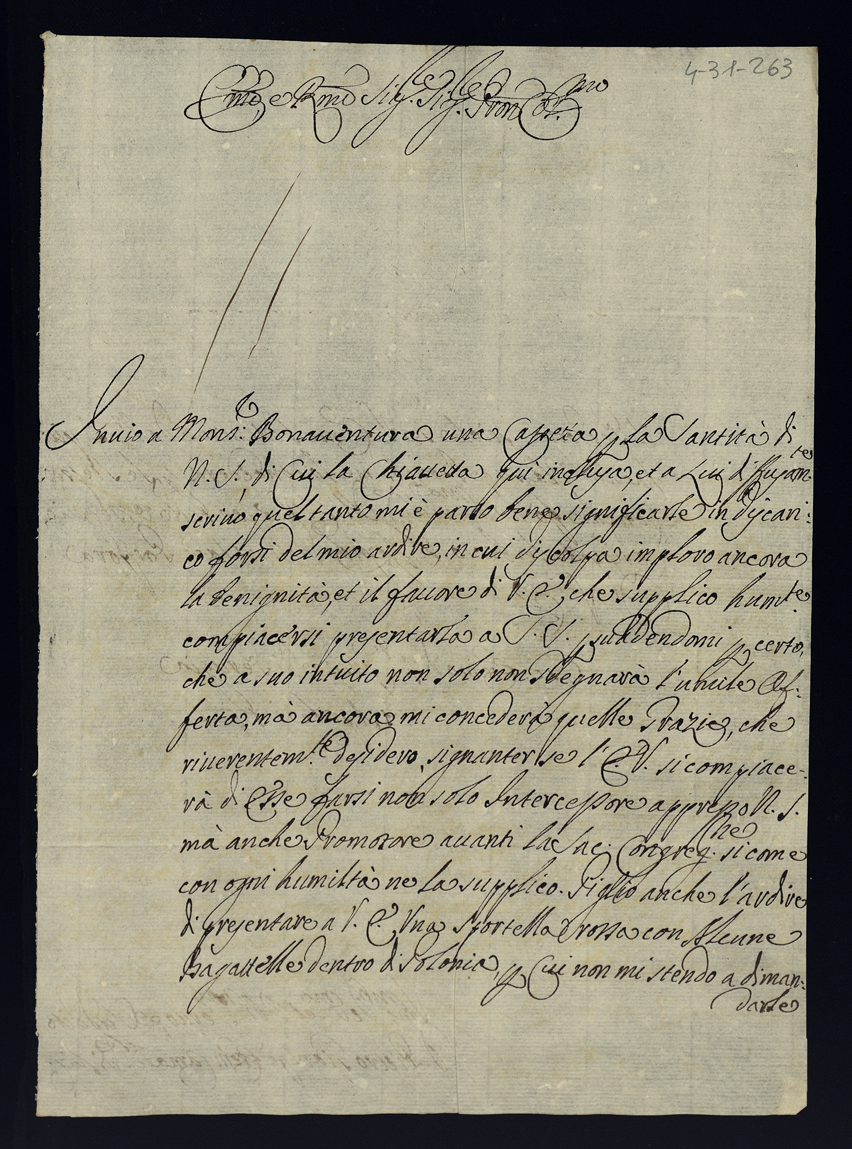 4-31-263
Em̃o, e Rm̃o Sig.re Sig.re Pron Col.mo
Inuio a Mons.r Bonauentura una Cassetta p la Santità di
N. S., di Cui la Chiauetta qui inclusa, et a Lui diffusam.te
scriuo quel tanto mi è parso bene significarle in discari:
co forsi del mio ardire, in cui discolpa imploro ancora
la benignità, et il fauore di V. E., che supplico hum.te
compiacersi presentarla a S. S., suadendomi p certo,
che a suo intuito non solo non sdegnarà l'umile Of:
ferta, mà ancora mi concederà quelle Grazie, che
riuerentem.te desidero, signanter se l'E. V. si compiace-
rà di Esse farsi non solo Intercessore appresso N. S.
mà anche Promotore auanti la Sac: Congreg.ne si come
con ogni humiltà ne la supplico. Piglio anche l'ardire
di presentare a V. E. Una Sportella Grossa con Alcune
Bagattelle dentro di Polonia, p Cui non mi stendo a diman:
darle